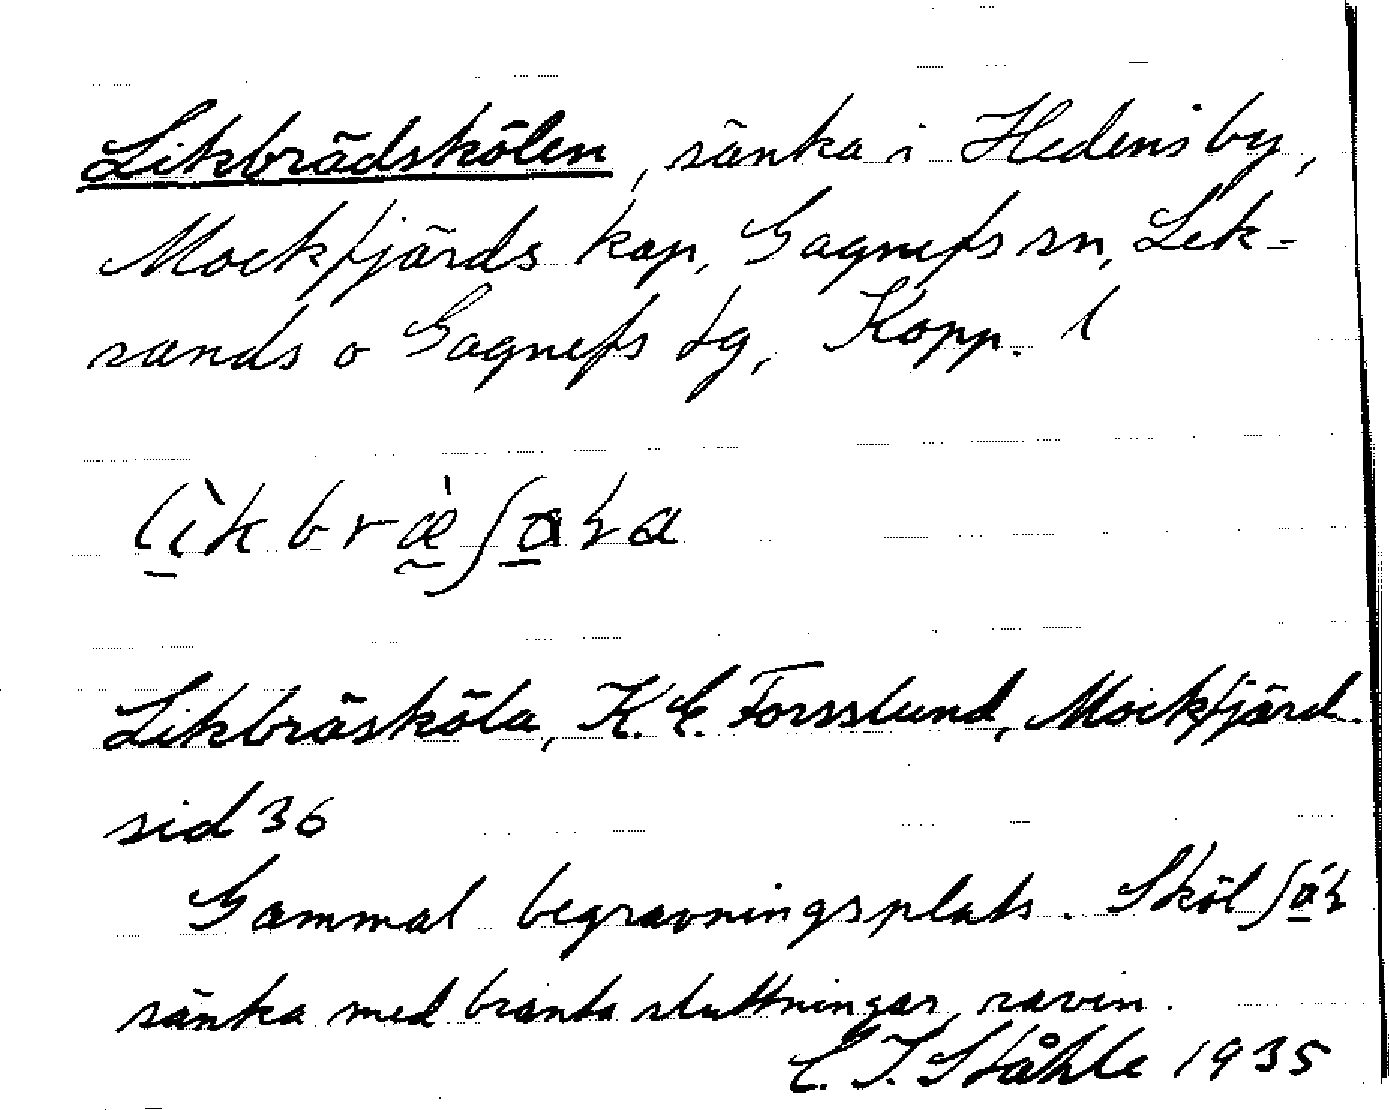 Likbrädskölen, sänka i Hedens by,
Mockfjärds kap, Gagnefs sn, Lek-
sands o Gagnefs tg, Kopp. l
Likbräsköla, K. E. Forsslund, Mockfjärd.
sid 36
Gammal begravningsplats. Sköl
sänka med branta sluttningar, ravin.
C. I. Ståhle 1935